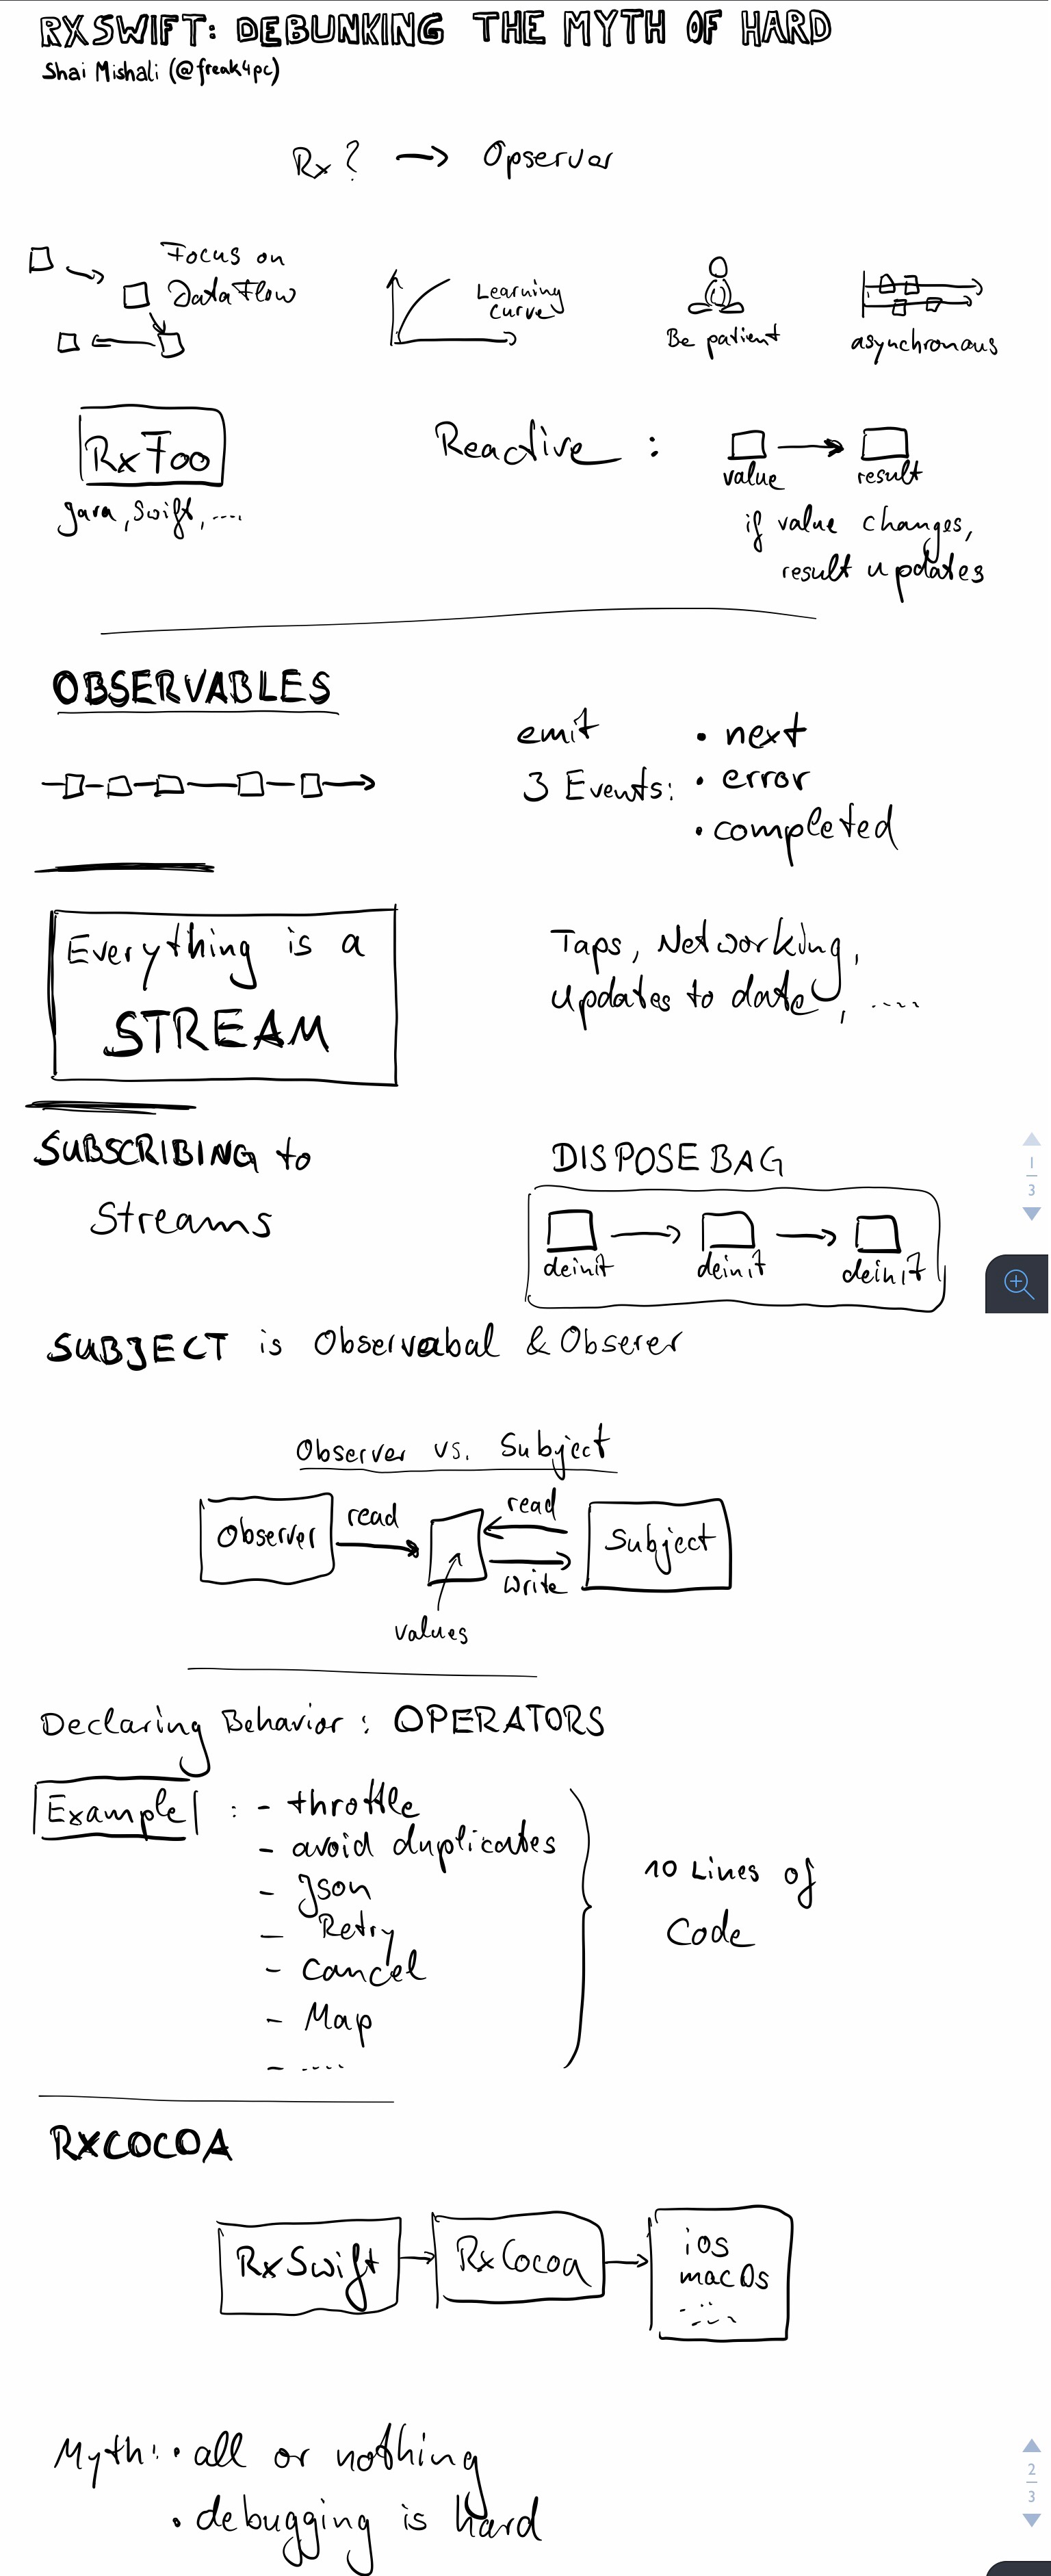 RXSWIFT: DEBUNKING THE MYTH OF HARD
Shai Mishali (@freak4pc)
Rx? → Opservar
Focus on
DataFlow
Learning
Curve
Be patient
asynchronous
RxFoo
Java, Swift, ....
Reactive :
value
result
if value changes,
result updates
OBSERVABLES
emit
3 Events:
• next
• error
• completed
Everything is a
STREAM
Taps, Networking,
updates to date, ....
SUBSCRIBING to
Streams
DISPOSE BAG
deinit
deinit
deinit
1
3
SUBJECT is Observabal & Obserer
Observer vs. Subject
Observer
read
read
write
Subject
values
Declaring Behavior : OPERATORS
Example : - throttle
- avoid duplicates
- Json
- Retry
- cancel
- Map
- ....
10 Lines of
Code
RXCOCOA
RxSwift
RxCocoa
ios
macOs
Myth: • all or nothing
• debugging is hard
2
3